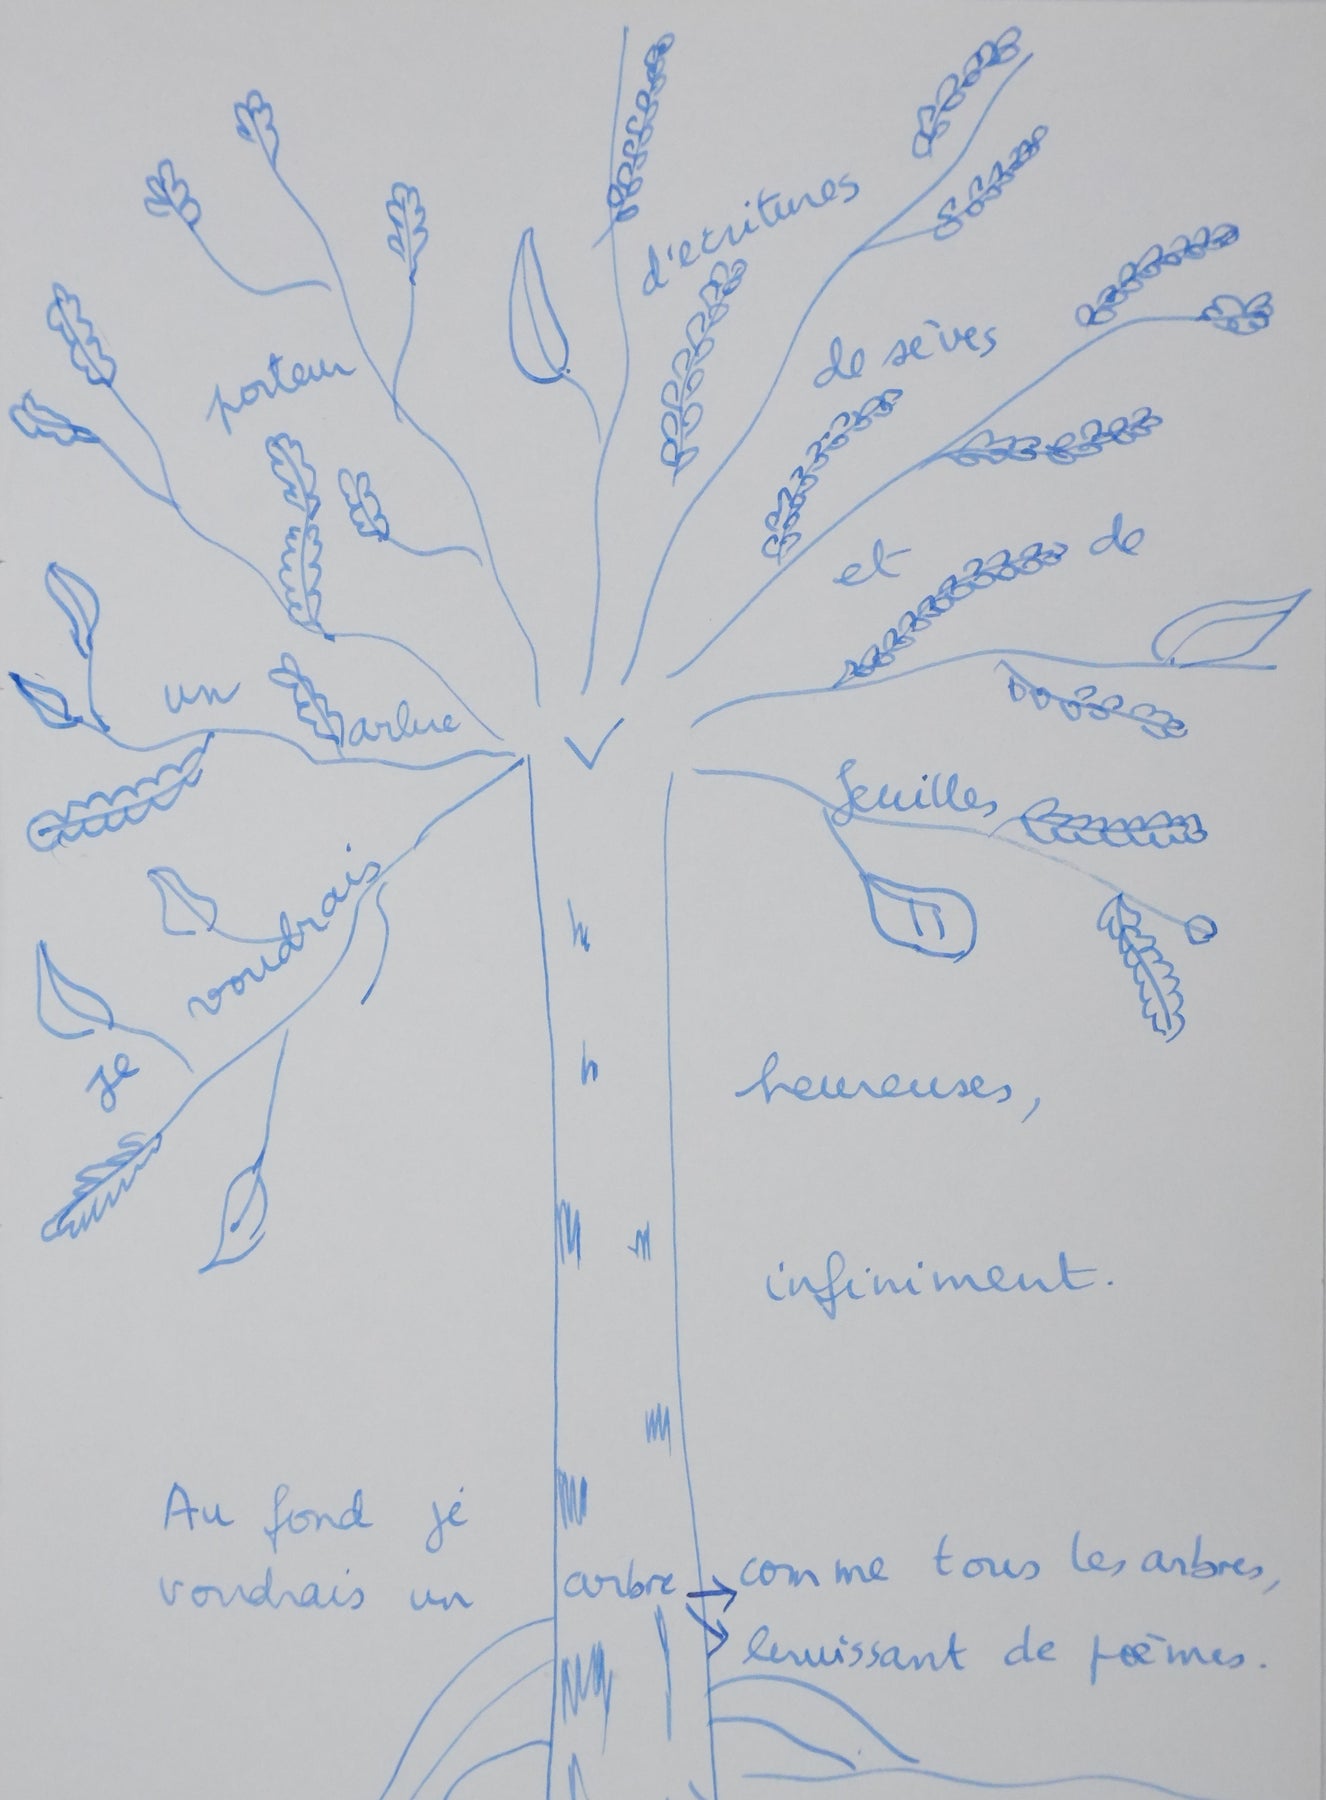 je
voudrais
un
arbre
porteur
d'écritures
de sèves
et de
feuilles
heureuses,
infiniment.
Au fond je
voudrais un arbre → comme tous les arbres,
bruissant de poèmes.